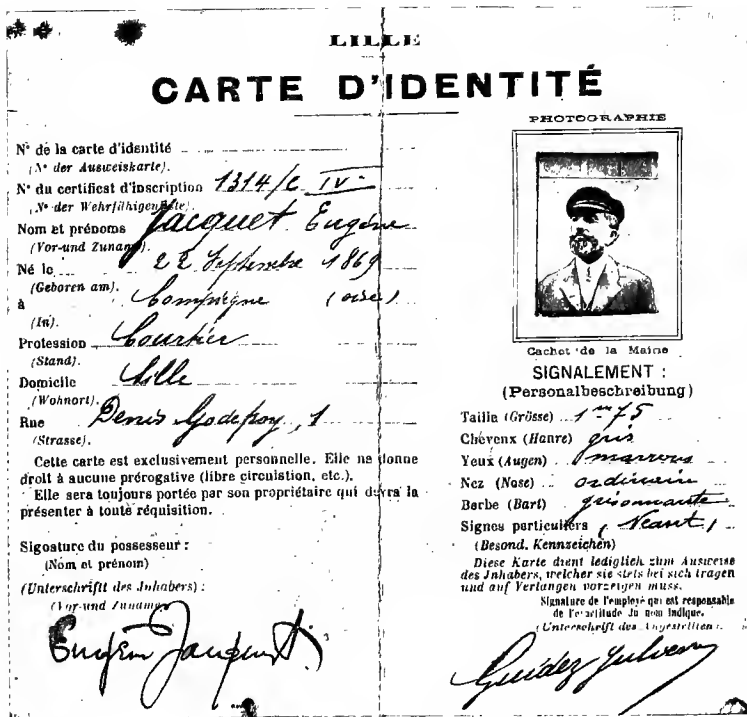 LILLE
CARTE D'IDENTITÉ
N° de la carte d'identité
(N° der Ausweiskarte).
N° du certificat d'inscription 1314/C IV
N° der Wehrfähigenliste).
Nom et prénoms Jacquet Eugène
(Vor-und Zuname).
Né le 22 Septembre 1869
(Geboren am).
à Compiègne (oise)
(In).
Profession Courtier
(Stand).
Domicile Lille
(Wohnort).
Rue Denis Godefroy, 1
(Strasse).
Cette carte est exclusivement personnelle. Elle ne donne
droit à aucune prérogative (libre circulation, etc.).
Elle sera toujours portée par son propriétaire qui devra la
présenter à toute réquisition.
Signature du possesseur :
(Nom et prénom)
(Unterschrifit des Jnhabers) :
(Vor-und Zuname
Eugène Jacquet
PHOTOGRAPHIE
Cachet de la Maine
SIGNALEMENT :
(Personalbeschreibung)
Taille (Grösse) 1m75
Cheveux (Hanre) gris
Yeux (Augen) marrons
Nez (Nase) ordinaire
Barbe (Bart) grisonnante
Signes particuliers (Néant)
(Besond. Kennzeichen)
Diese Karte dient lediglich zum Ausweise
des Jnhabers, welcher sie stets bei sich tragen
und auf Verlangen vorzeigen muss.
Signature de l'employé qui est responsable
de l'exactitude du nom indique.
(Unterschrift des Angestellten).
Guidez